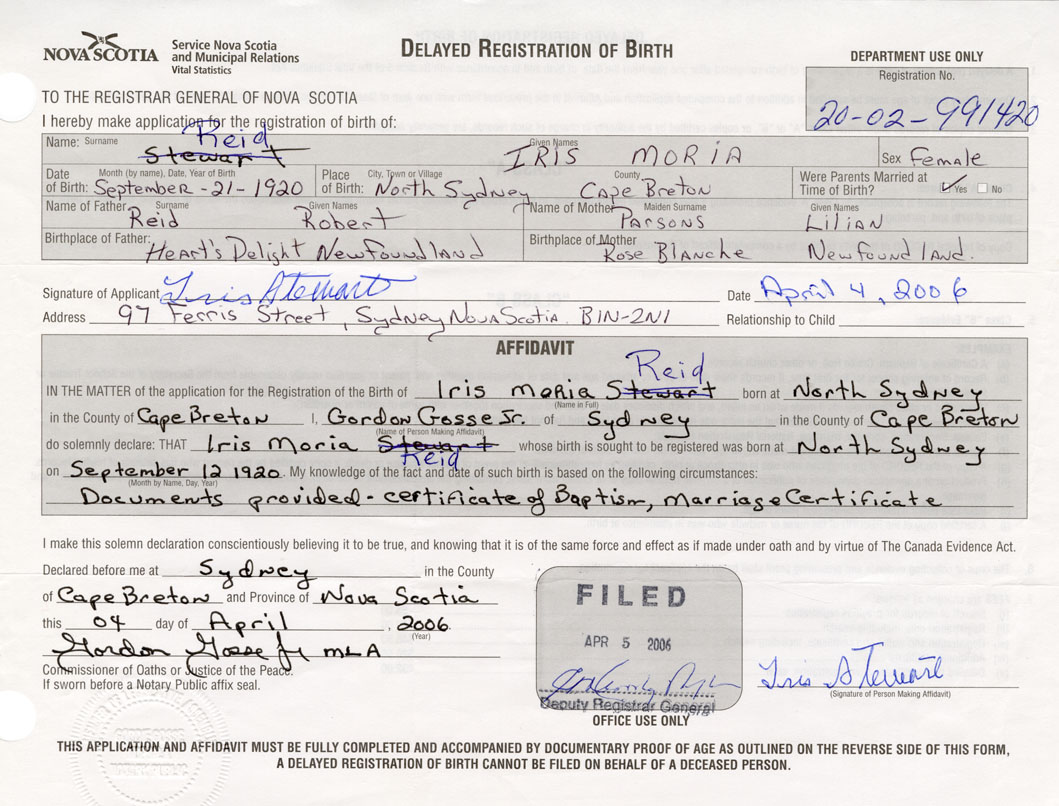 NOVA SCOTIA
Service Nova Scotia
and Municipal Relations
Vital Statistics
DELAYED REGISTRATION OF BIRTH
DEPARTMENT USE ONLY
Registration No.
20-02-991420
TO THE REGISTRAR GENERAL OF NOVA SCOTIA
I hereby make application for the registration of birth of:
Reid
Name: Surname Stewart Given Names IRIS MORIA Sex Female
Date of Birth: Month (by name), Date, Year of Birth September-21-1920 Place of Birth: City, Town or Village North Sydney County Cape Breton Were Parents Married at Time of Birth? Yes No
Name of Father: Surname Reid Given Names Robert Name of Mother Maiden Surname PARSONS Given Names LILIAN
Birthplace of Father: Heart's Delight Newfoundland Birthplace of Mother Rose Blanche Newfoundland.
Signature of Applicant Iris Stewart Date April 4, 2006
Address 97 Ferris Street, Sydney Nova Scotia B1N-2N1 Relationship to Child
AFFIDAVIT
Reid
IN THE MATTER of the application for the Registration of the Birth of Iris Moria Stewart born at North Sydney
(Name in Full)
in the County of Cape Breton I, Gordon Gosse Jr. of Sydney in the County of Cape Breton
(Name of Person Making Affidavit)
do solemnly declare: THAT Iris Moria Stewart whose birth is sought to be registered was born at North Sydney
Reid
on September 12 1920. My knowledge of the fact and date of such birth is based on the following circumstances:
(Month by Name, Day, Year)
Documents provided - certificate of Baptism, Marriage Certificate
I make this solemn declaration conscientiously believing it to be true, and knowing that it is of the same force and effect as if made under oath and by virtue of The Canada Evidence Act.
Declared before me at Sydney in the County
of Cape Breton and Province of Nova Scotia
this 04 day of April, 2006
(Year)
Gordon Gosse Jr MLA
Commissioner of Oaths or Justice of the Peace.
If sworn before a Notary Public affix seal.
FILED
APR 5 2006
Deputy Registrar General
OFFICE USE ONLY
Iris Stewart
(Signature of Person Making Affidavit)
THIS APPLICATION AND AFFIDAVIT MUST BE FULLY COMPLETED AND ACCOMPANIED BY DOCUMENTARY PROOF OF AGE AS OUTLINED ON THE REVERSE SIDE OF THIS FORM,
A DELAYED REGISTRATION OF BIRTH CANNOT BE FILED ON BEHALF OF A DECEASED PERSON.